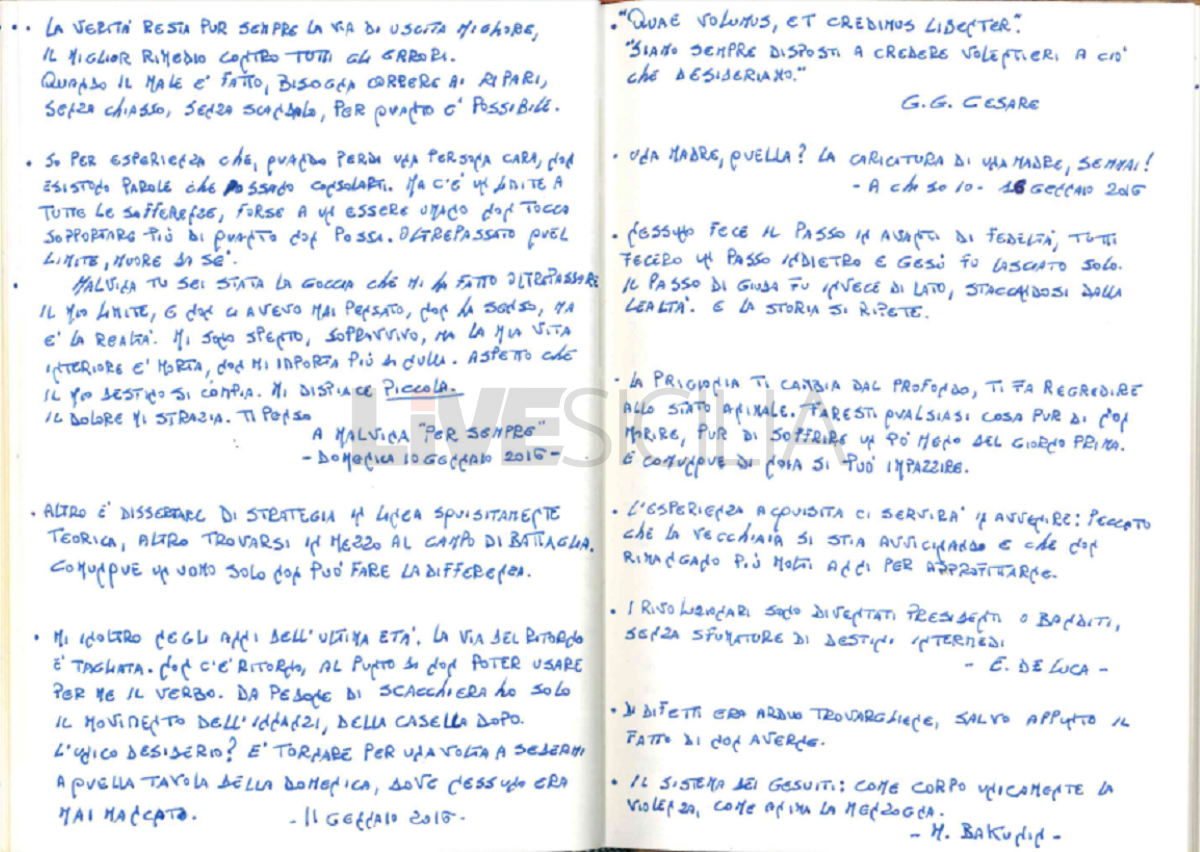 • LA VERITÀ RESTA PUR SEMPRE LA VIA DI USCITA MIGLIORE,
IL MIGLIOR RIMEDIO CONTRO TUTTI GLI ERRORI.
QUANDO IL MALE E' FATTO, BISOGNA CORRERE AI RIPARI,
SENZA CHIASSO, SENZA SCANDALO, PER QUANTO E' POSSIBILE.
• SO PER ESPERIENZA CHE, QUANDO PERDI UNA PERSONA CARA, NON
ESISTONO PAROLE CHE POSSANO CONSOLARTI. MA C'E' UN LIMITE A
TUTTE LE SOFFERENZE, FORSE A UN ESSERE UMANO NON TOCCA
SOPPORTARE PIÙ DI QUANTO NON POSSA. OLTREPASSATO QUEL
LIMITE, MUORE IN SE'.
• MALVINA TU SEI STATA LA GOCCIA CHE MI HA FATTO OLTREPASSARE
IL MIO LIMITE, E NON CI AVEVO MAI PENSATO, NON HA SENSO, MA
E' LA REALTÀ. MI SONO SPENTO, SOPRAVVIVO, MA LA MIA VITA
INTERIORE E' MORTA, NON MI IMPORTA PIÙ DI NULLA. ASPETTO CHE
IL MIO DESTINO SI COMPIA. MI DISPIACE PICCOLA.
IL DOLORE MI STRAZIA. TI PENSO
A MALVINA "PER SEMPRE"
- DOMENICA 10 GENNAIO 2016 -
• ALTRO E' DISSERTARE DI STRATEGIA IN LINEA SQUISITAMENTE
TEORICA, ALTRO TROVARSI IN MEZZO AL CAMPO DI BATTAGLIA.
COMUNQUE UN UOMO SOLO NON PUO' FARE LA DIFFERENZA.
• MI INOLTRO NEGLI ANNI DELL'ULTIMA ETÀ. LA VIA DEL RITORNO
E' TAGLIATA. NON C'E' RITORNO, AL PUNTO DI NON POTER USARE
PER ME IL VERBO. DA PEDONE DI SCACCHIERA HO SOLO
IL MOVIMENTO DELL'INNANZI, DELLA CASELLA DOPO.
L'UNICO DESIDERIO? E' TORNARE PER UNA VOLTA A SEDERMI
A QUELLA TAVOLA DELLA DOMENICA, DOVE NESSUNO ERA
MAI MANCATO. - 11 GENNAIO 2016 -
• "QUAE VOLUMUS, ET CREDIMUS LIBENTER".
"SIAMO SEMPRE DISPOSTI A CREDERE VOLENTIERI A CIO'
CHE DESIDERIAMO."
G.G. CESARE
• UNA MADRE, QUELLA? LA CARICATURA DI UNA MADRE, SEMMAI!
- A CHI SO IO - 16 GENNAIO 2016
• NESSUNO FECE IL PASSO IN AVANTI DI FEDELTÀ, TUTTI
FECERO UN PASSO INDIETRO E GESÙ FU LASCIATO SOLO.
IL PASSO DI GIUDA FU INVECE DI LATO, STACCANDOSI DALLA
LEALTÀ. E LA STORIA SI RIPETE.
• LA PRIGIONIA TI CAMBIA DAL PROFONDO, TI FA REGREDIRE
ALLO STATO ANIMALE. FARESTI QUALSIASI COSA PUR DI NON
MORIRE, PUR DI SOFFRIRE UN PÒ MENO DEL GIORNO PRIMA.
E COMUNQUE DI NOIA SI PUÒ IMPAZZIRE.
• L'ESPERIENZA ACQUISITA CI SERVIRA' IN AVVENIRE: PECCATO
CHE LA VECCHIAIA SI STIA AVVICINANDO E CHE NON
RIMANGANO PIÙ MOLTI ANNI PER APPROFITTARNE.
• I RIVOLUZIONARI SONO DIVENTATI PRESIDENTI O BANDITI,
SENZA SFUMATURE DI DESTINI INTERMEDI
- E. DE LUCA -
• DI DIFETTI ERA ARDUO TROVARGLIENE, SALVO APPUNTO IL
FATTO DI NON AVERNE.
• IL SISTEMA DEI GESUITI: COME CORPO UNICAMENTE LA
VIOLENZA, COME ANIMA LA MENZOGNA.
- M. BAKUNIN -
LIVESICILIA